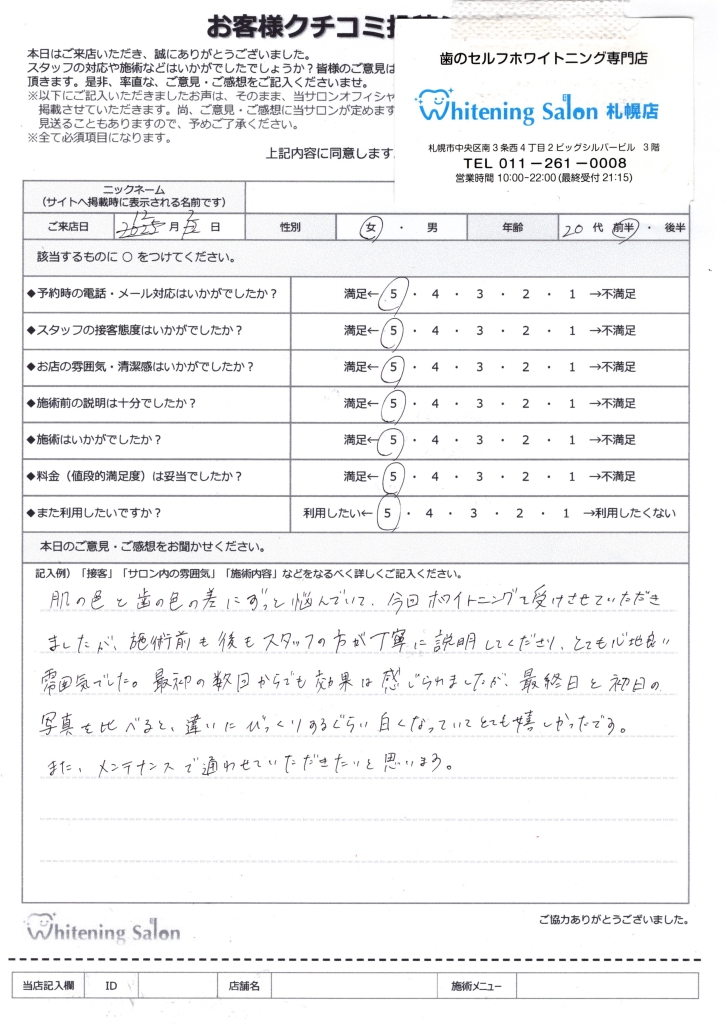 お客様クチコミ
本日はご来店いただき、誠にありがとうございました。
スタッフの対応や施術などはいかがでしたでしょうか？皆様のご意見は
頂きます。是非、率直な、ご意見・ご感想をご記入くださいませ。
※以下にご記入いただきましたお声は、そのまま、当サロンオフィシャ
掲載させていただきます。尚、ご意見・ご感想に当サロンが定めます
見送ることもありますので、予めご了承ください。
※全て必須項目になります。
上記内容に同意します
歯のセルフホワイトニング専門店
Whitening Salon 札幌店
札幌市中央区南3条西4丁目2ビッグシルバービル 3階
TEL 011－261－0008
営業時間 10:00-22:00 (最終受付 21:15)
ニックネーム
（サイトへ掲載時に表示される名前です）
ご来店日 12 月 日 性別 女 ・ 男 年齢 20 代 前半 ・ 後半
該当するものに ○ をつけてください。
◆予約時の電話・メール対応はいかがでしたか？ 満足← 5 ・ 4 ・ 3 ・ 2 ・ 1 →不満足
◆スタッフの接客態度はいかがでしたか？ 満足← 5 ・ 4 ・ 3 ・ 2 ・ 1 →不満足
◆お店の雰囲気・清潔感はいかがでしたか？ 満足← 5 ・ 4 ・ 3 ・ 2 ・ 1 →不満足
◆施術前の説明は十分でしたか？ 満足← 5 ・ 4 ・ 3 ・ 2 ・ 1 →不満足
◆施術はいかがでしたか？ 満足← 5 ・ 4 ・ 3 ・ 2 ・ 1 →不満足
◆料金（値段的満足度）は妥当でしたか？ 満足← 5 ・ 4 ・ 3 ・ 2 ・ 1 →不満足
◆また利用したいですか？ 利用したい← 5 ・ 4 ・ 3 ・ 2 ・ 1 →利用したくない
本日のご意見・ご感想をお聞かせください。
記入例）「接客」「サロン内の雰囲気」「施術内容」などをなるべく詳しくご記入ください。
肌の色と歯の色の差にずっと悩んでいて、今回ホワイトニングを受けさせていただき
ましたが、施術前も後もスタッフの方が丁寧に説明してくださり、とても心地良い
雰囲気でした。最初の数回からでも効果は感じられましたが、最終日と初日の
写真を比べると、違いにびっくりするぐらい白くなっていてとても嬉しかったです。
また、メンテナンスで通わせていただきたいと思います。
Whitening Salon
ご協力ありがとうございました。
当店記入欄 ID 店舗名 施術メニュー